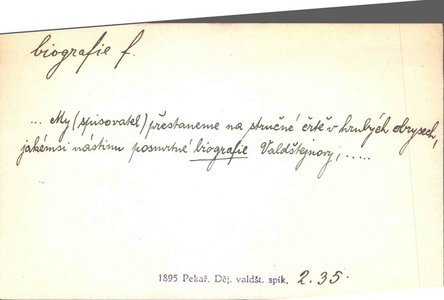 biografie f.
... My (spisovatel) přestaneme na stručné črtě v hrubých obrysech,
jakémsi nástinu posmrtné biografie Valdštejnovy, .....
1895 Pekař. Děj. valdšt. spik. 2.35.